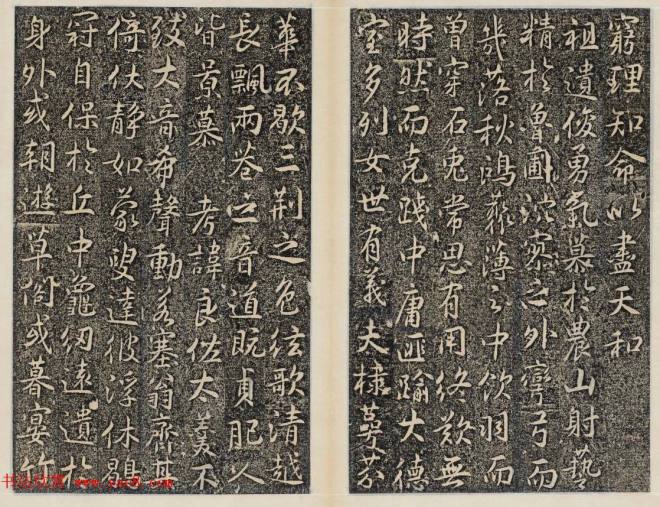 窮理知命以盡天和
祖遺俊勇氣慕於農山射藝
精於矍圃泬寥之外彎弓而
幾落秋鴻叢薄之中飲羽而
曾穿石兔常思有用終歎無
時然而克踐中庸匪踰大德
室多列女世有義夫棣萼芬
華不歇三荊之色絃歌清越
長飄兩巷之音道既貞肥人
皆景慕 考諱良佐太羹不
致大音希聲動若塞翁齊其
倚伏靜如蒙叟達彼浮休鶡
冠自保於丘中 遠遺於
身外或朝遊草 或暮宴竹